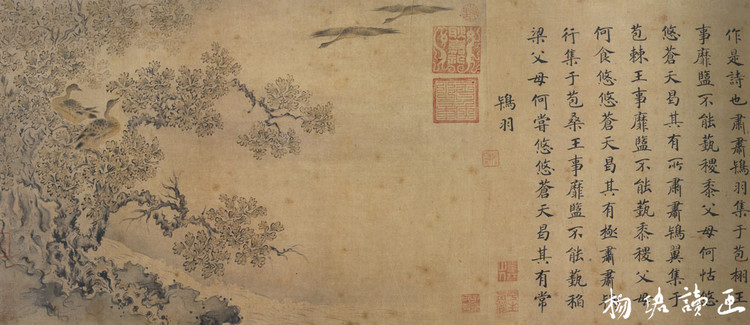 作是詩也肅肅鴇羽集于苞栩王
事靡盬不能蓺稷黍父母何怙悠
悠蒼天曷其有所肅肅鴇翼集于
苞棘王事靡盬不能蓺黍稷父母
何食悠悠蒼天曷其有極肅肅鴇
行集于苞桑王事靡盬不能蓺稻
梁父母何嘗悠悠蒼天曷其有常
鴇羽
讀画